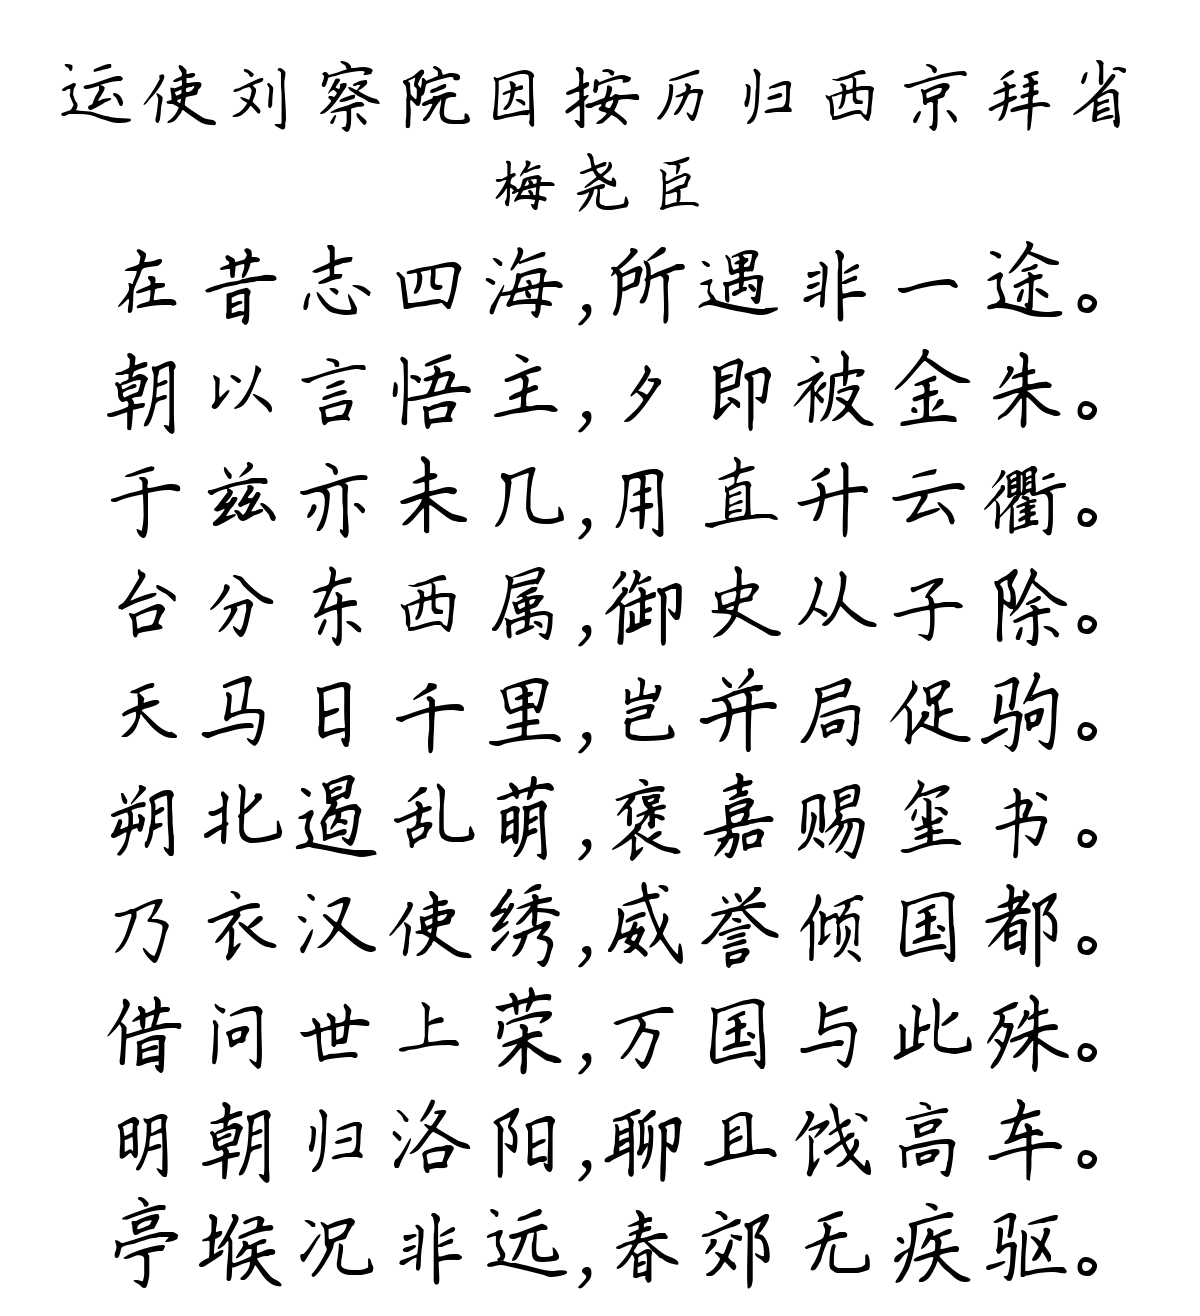 运使刘察院因按历归西京拜省
梅尧臣
在昔志四海,所遇非一途。
朝以言悟主,夕即被金朱。
于兹亦未几,用直升云衢。
台分东西属,御史从子除。
天马日千里,岂并局促驹。
朔北遏乱萌,褒嘉赐玺书。
乃衣汉使绣,威誉倾国都。
借问世上荣,万国与此殊。
明朝归洛阳,聊且饯高车。
亭堠况非远,春郊无疾驱。